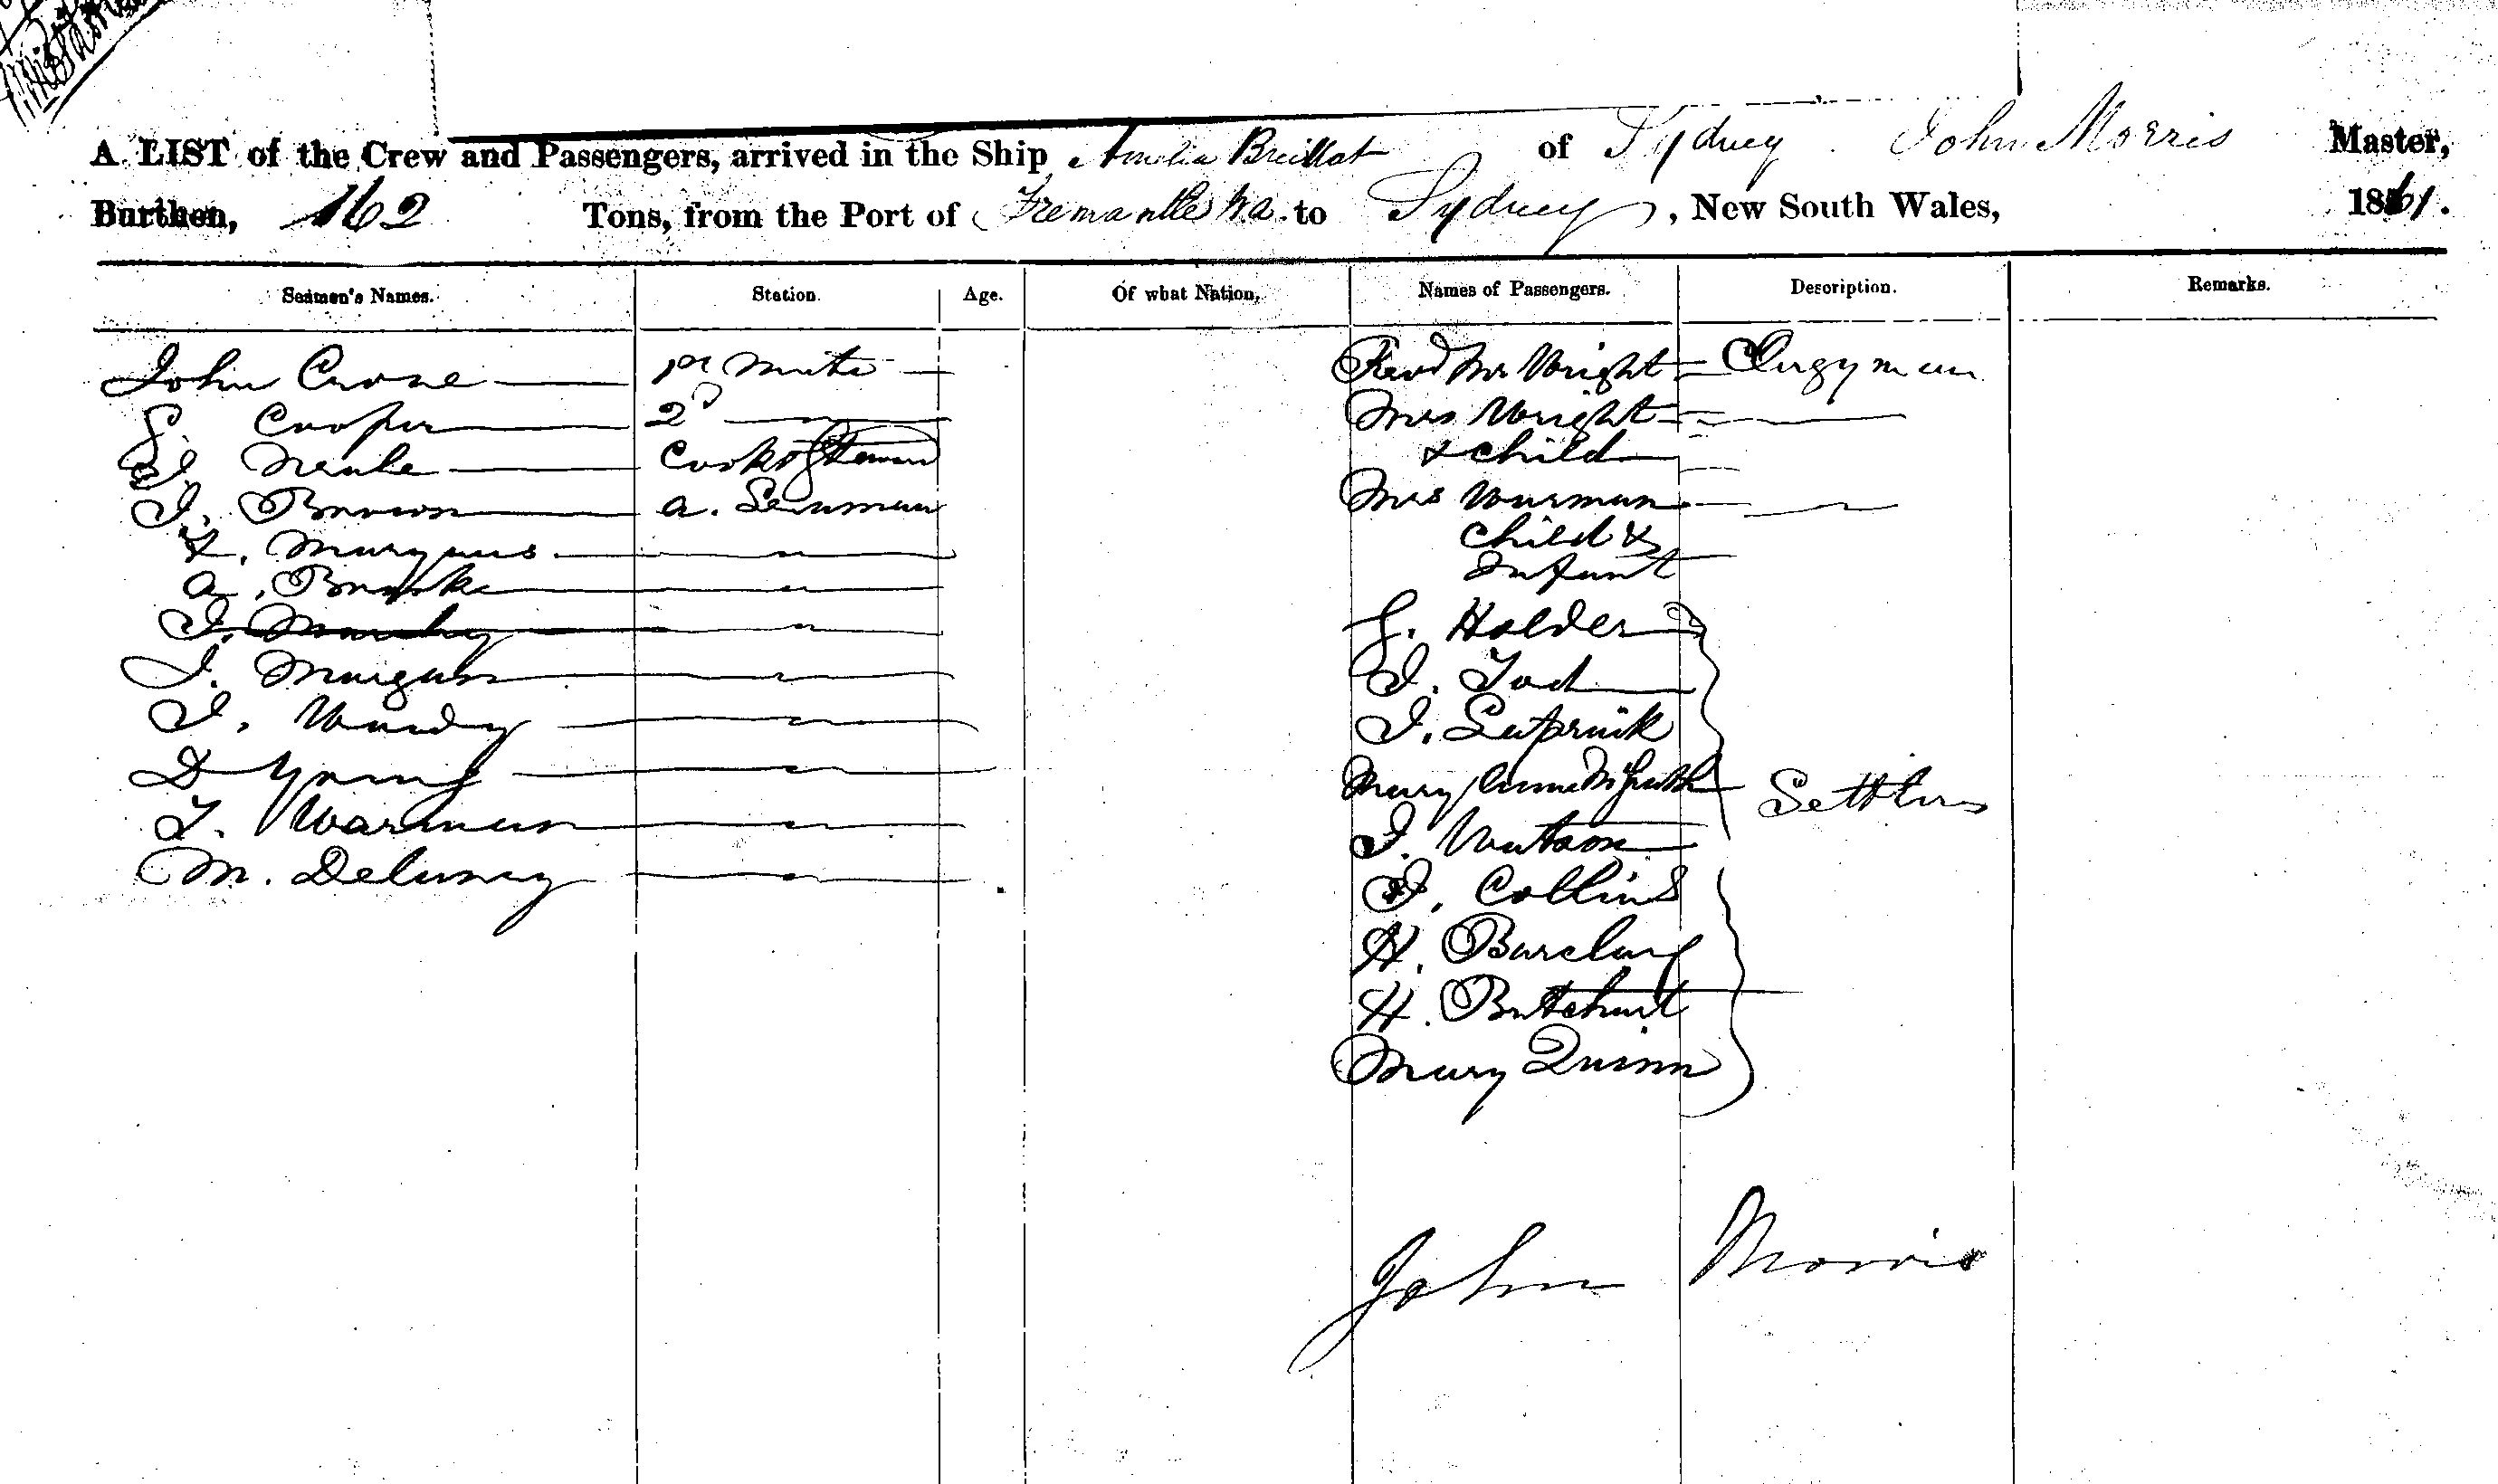 A LIST of the Crew and Passengers, arrived in the Ship Amelia Breillat of Sydney John Morris Master,
Burthen, 162 Tons, from the Port of Fremantle Wa. to Sydney, New South Wales, 1861.
Seamen's Names. Station. Age. Of what Nation. Names of Passengers. Description. Remarks.
John Crone 1st Mate Revd Mr Wright Clergyman
G. Cooper 2d Mrs Wright
Cook & Steward & Child
J. Brown A. Seaman Mrs Warman
Child &
A. Infant
G. Holder
J. Morgan J. Tod
J.
D Young Mary Anne Settlers
T. Warman J. Watson
M. Deluney J. Collins
H. Barclay
H. Butchart
Mary Quinn
John Morris